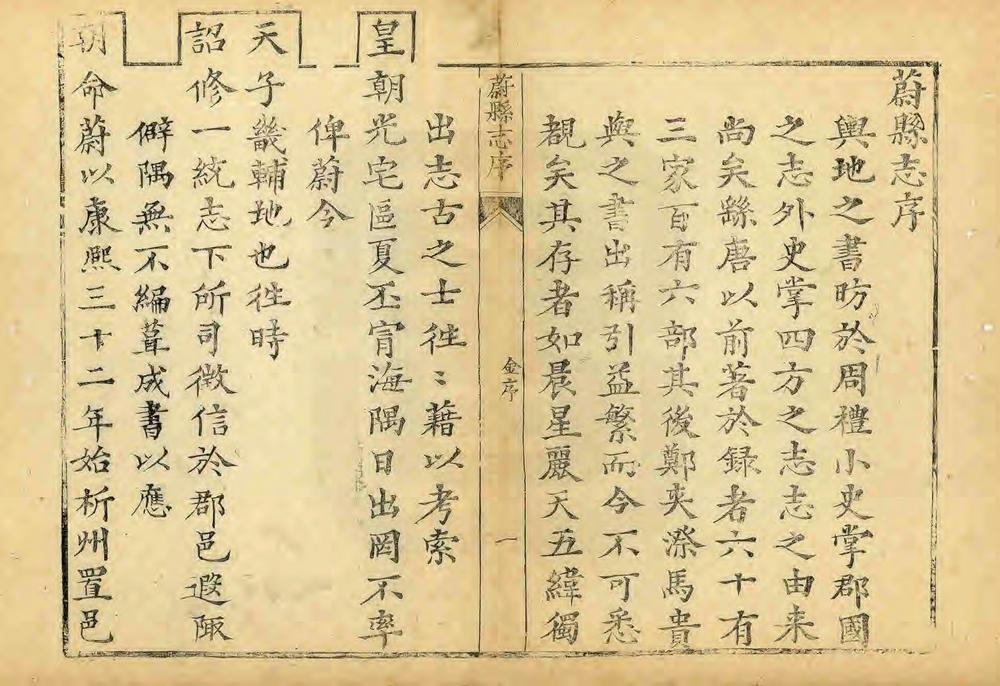 蔚縣志序
輿地之書昉於周禮小史掌郡國
之志外史掌四方之志志之由来
尚矣繇唐以前著於録者六十有
三家百有六部其後鄭夾漈馬貴
輿之書出稱引益繁而今不可悉
覩矣其存者如晨星麗天五緯獨
蔚縣志序
金序
一
出志古之士徃〻藉以考索
皇朝光宅區夏丕冐海隅日出罔不率
俾蔚今
天子畿輔地也徃時
詔修一統志下所司徴信於郡邑遐陬
僻隅無不編葺成書以應
朝命蔚以康熙三十二年始析州置邑